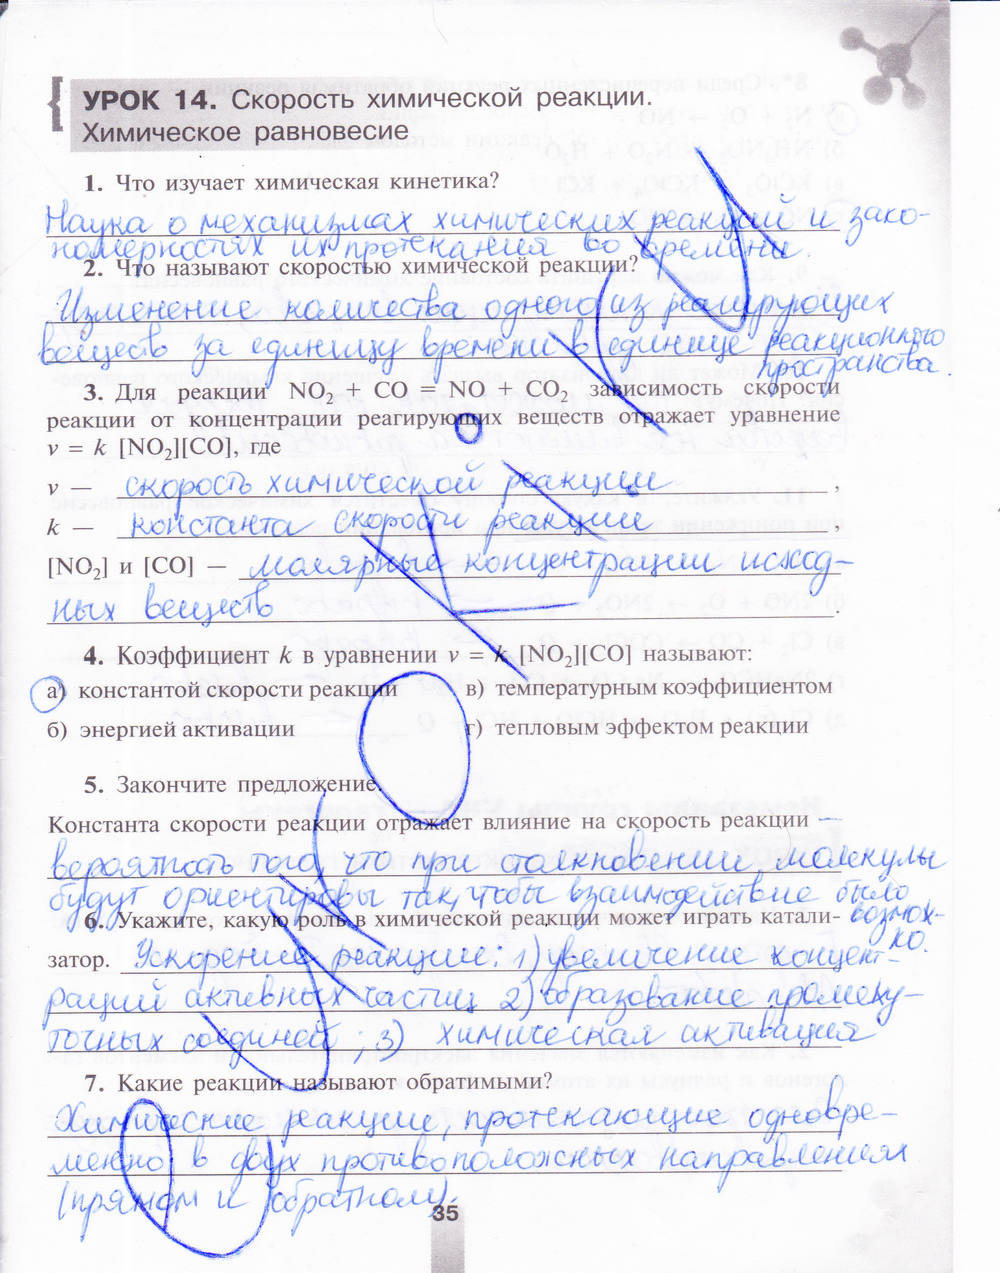 УРОК 14. Скорость химической реакции.
Химическое равновесие
1. Что изучает химическая кинетика?
Наука о механизмах химических реакций и зако-
номерностях их протекания во времени.
2. Что называют скоростью химической реакции?
Изменение количества одного из реагирующих
веществ за единицу времени в единице реакционного
пространства.
3. Для реакции NO₂ + CO = NO + CO₂ зависимость скорости
реакции от концентрации реагирующих веществ отражает уравнение
v = k [NO₂][CO], где
v — скорость химической реакции,
k — константа скорости реакции,
[NO₂] и [CO] — молярные концентрации исход-
ных веществ.
4. Коэффициент k в уравнении v = k [NO₂][CO] называют:
а) константой скорости реакции в) температурным коэффициентом
б) энергией активации г) тепловым эффектом реакции
5. Закончите предложение.
Константа скорости реакции отражает влияние на скорость реакции —
вероятность того, что при столкновении молекулы
будут ориентировы так, чтобы взаимодействие было
возмож-
но.
6. Укажите, какую роль в химической реакции может играть катали-
затор. Ускорение реакции: 1) увеличение концент-
раций активных частиц 2) образование промежу-
точных соединей; 3) химическая активация
7. Какие реакции называют обратимыми?
Химические реакции, протекающие одновре-
менно в двух противоположных направлениях
(прямом и обратном).
35